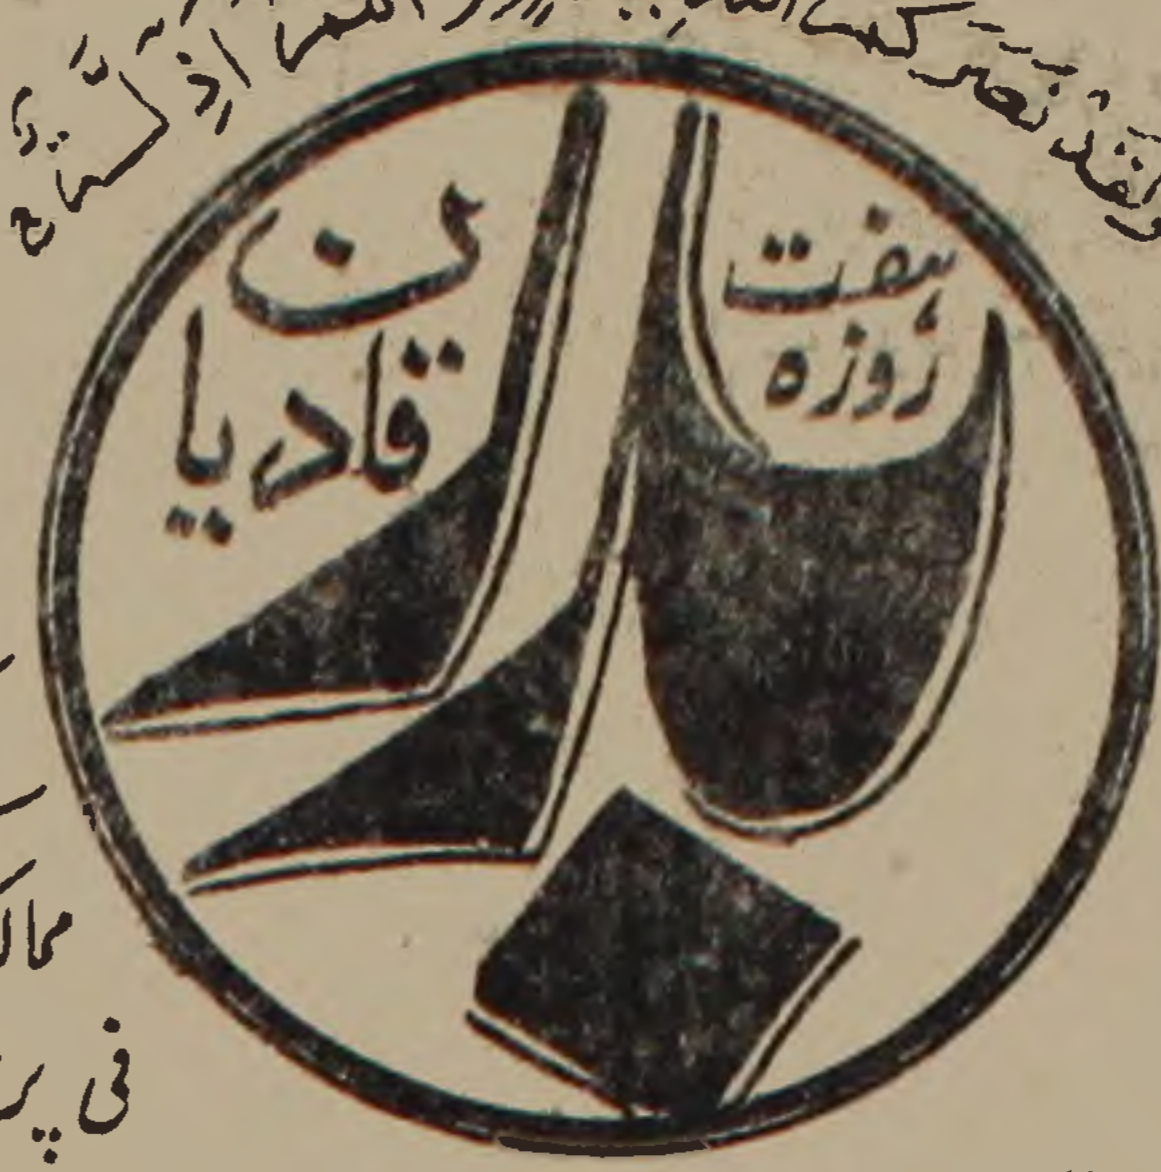 وَلَقَدْ نَصَرَكُمُ اللہُ بِبَدْرٍ وَّاَنْتُمْ اَذِلَّۃٌ
ہفت
روزہ
بدر
قادیان
فی پر